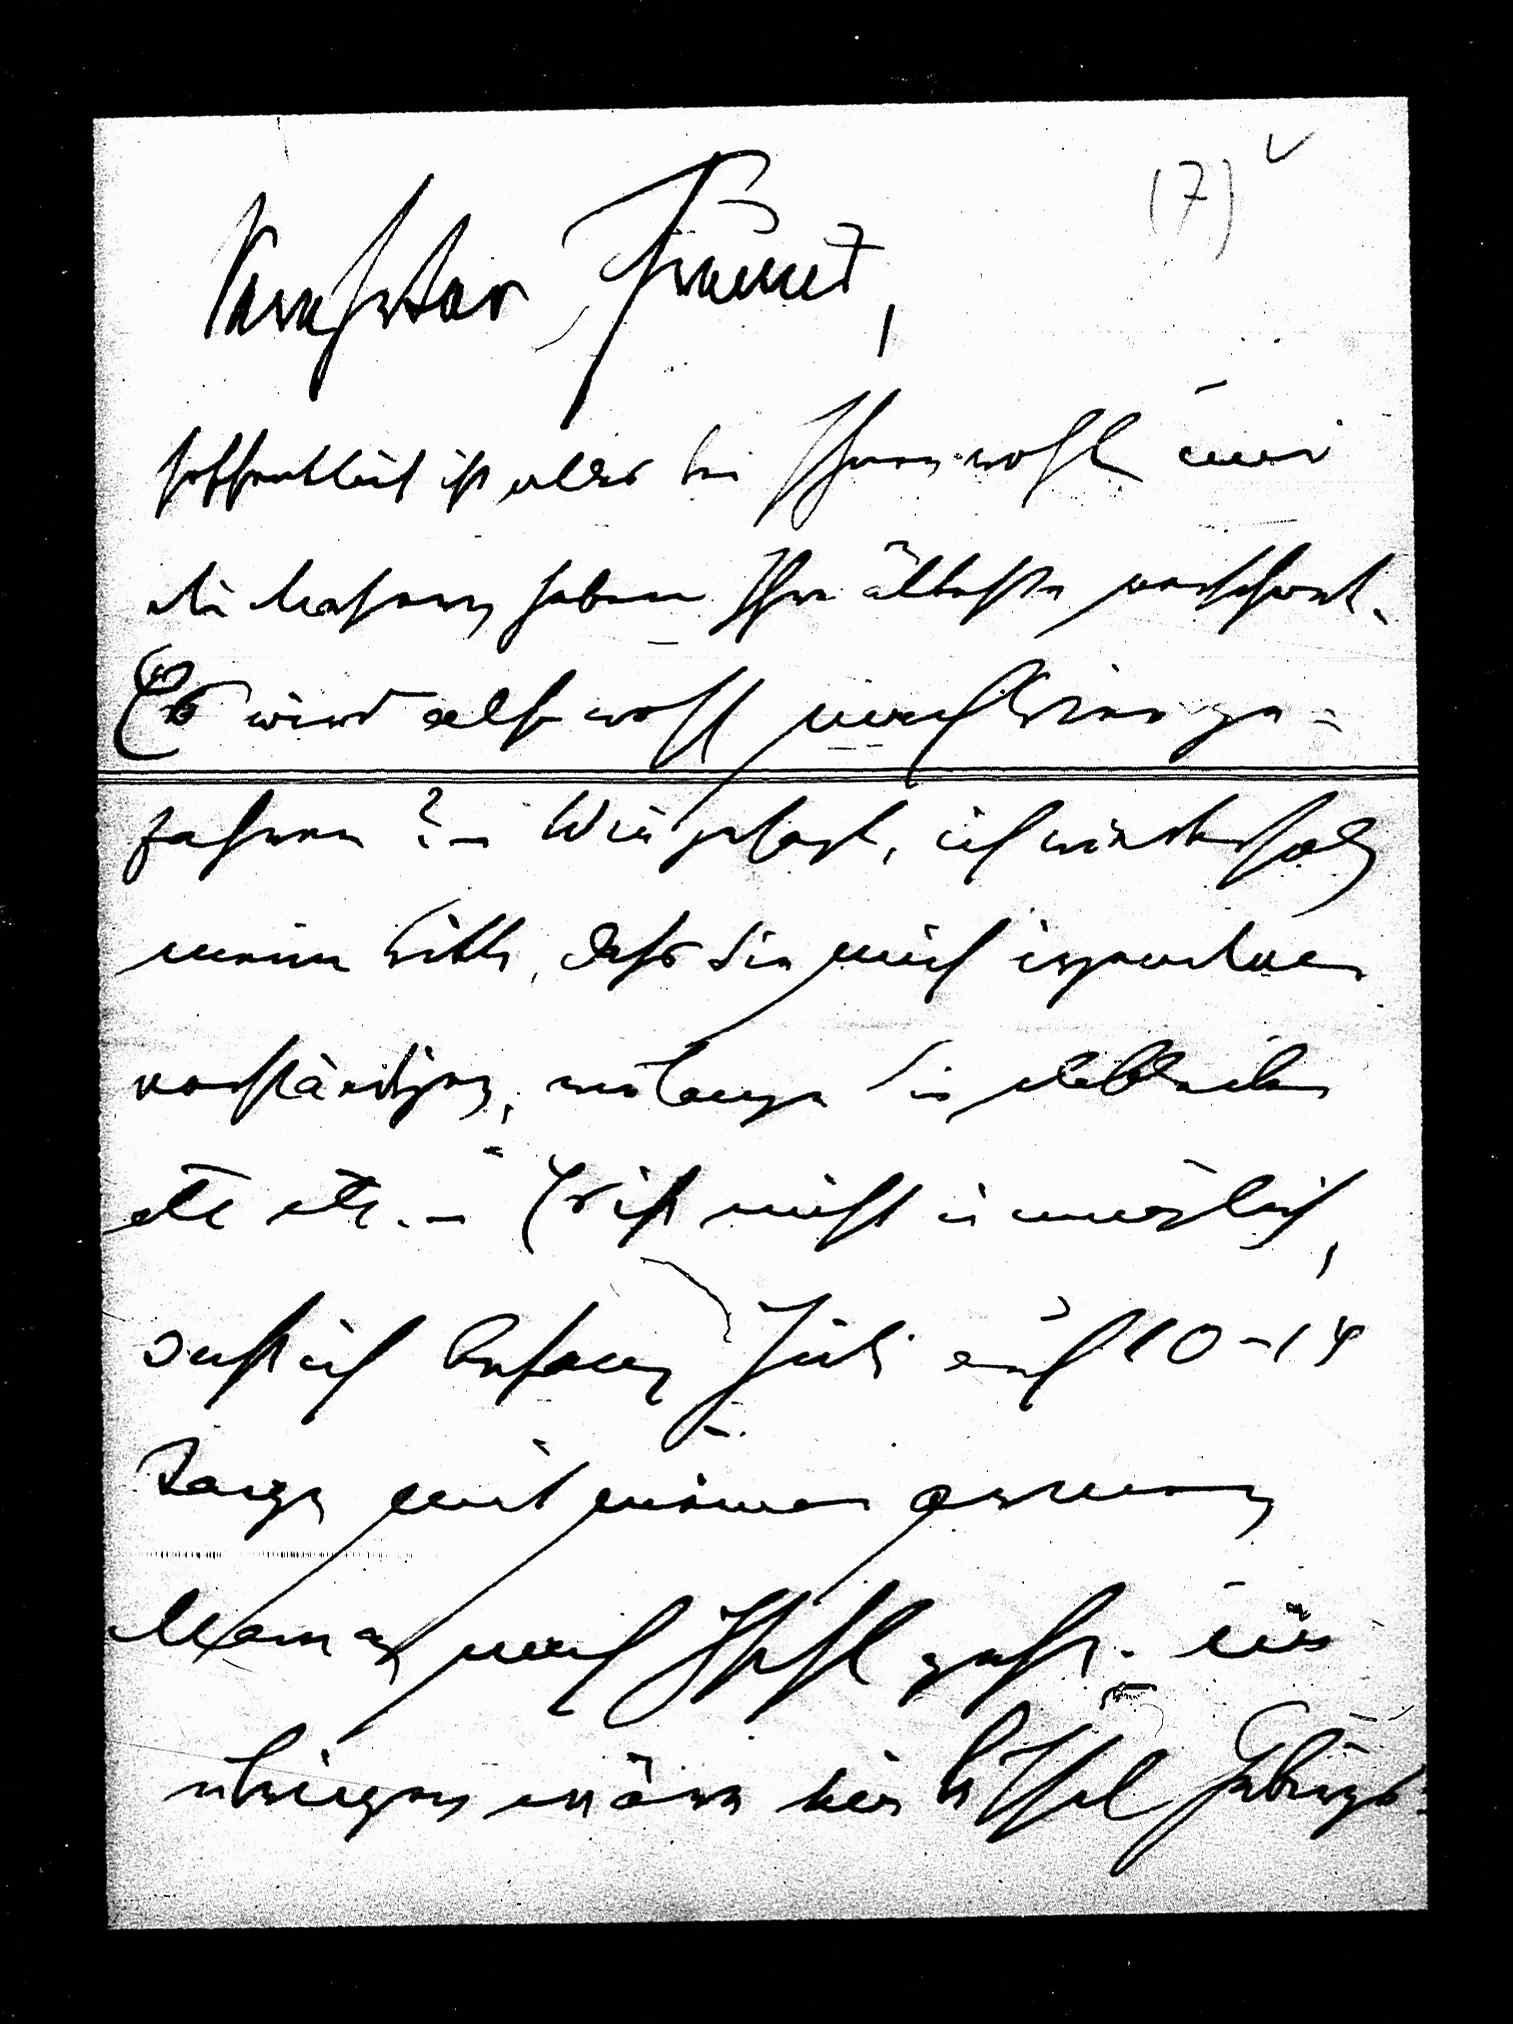 (7)
Verehrter Freund,
hoffentlich ist alles bei Ihnen wohl und
die Masern haben Ihre älteste verschont.
Es wird also wohl nach
fahren? – Wie gesagt, ich wiederhole
meine Bitte, dass Sie mich irgendwie
verständigen, wie lange Sie dableiben
etc etc. – Es ist nicht unmöglich,
dass ich Anfang Juli auf 10–14
Tage mit meiner armen
Mama nach Ischl gehe. Im
übrigen wäre